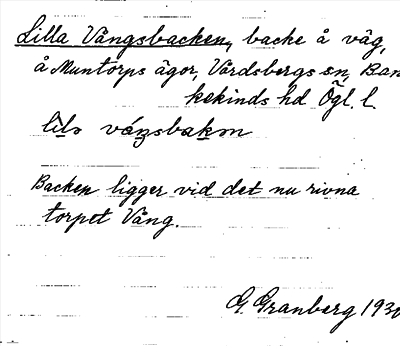 Lilla Vångsbacken, backe å väg,
å Muntorps ägor, Vårdsbergs sn, Ban
kekinds hd Ögl. l.
lilə váŋsbakən
Backen ligger vid det nu rivna
torpet Vång.
G. Granberg 193